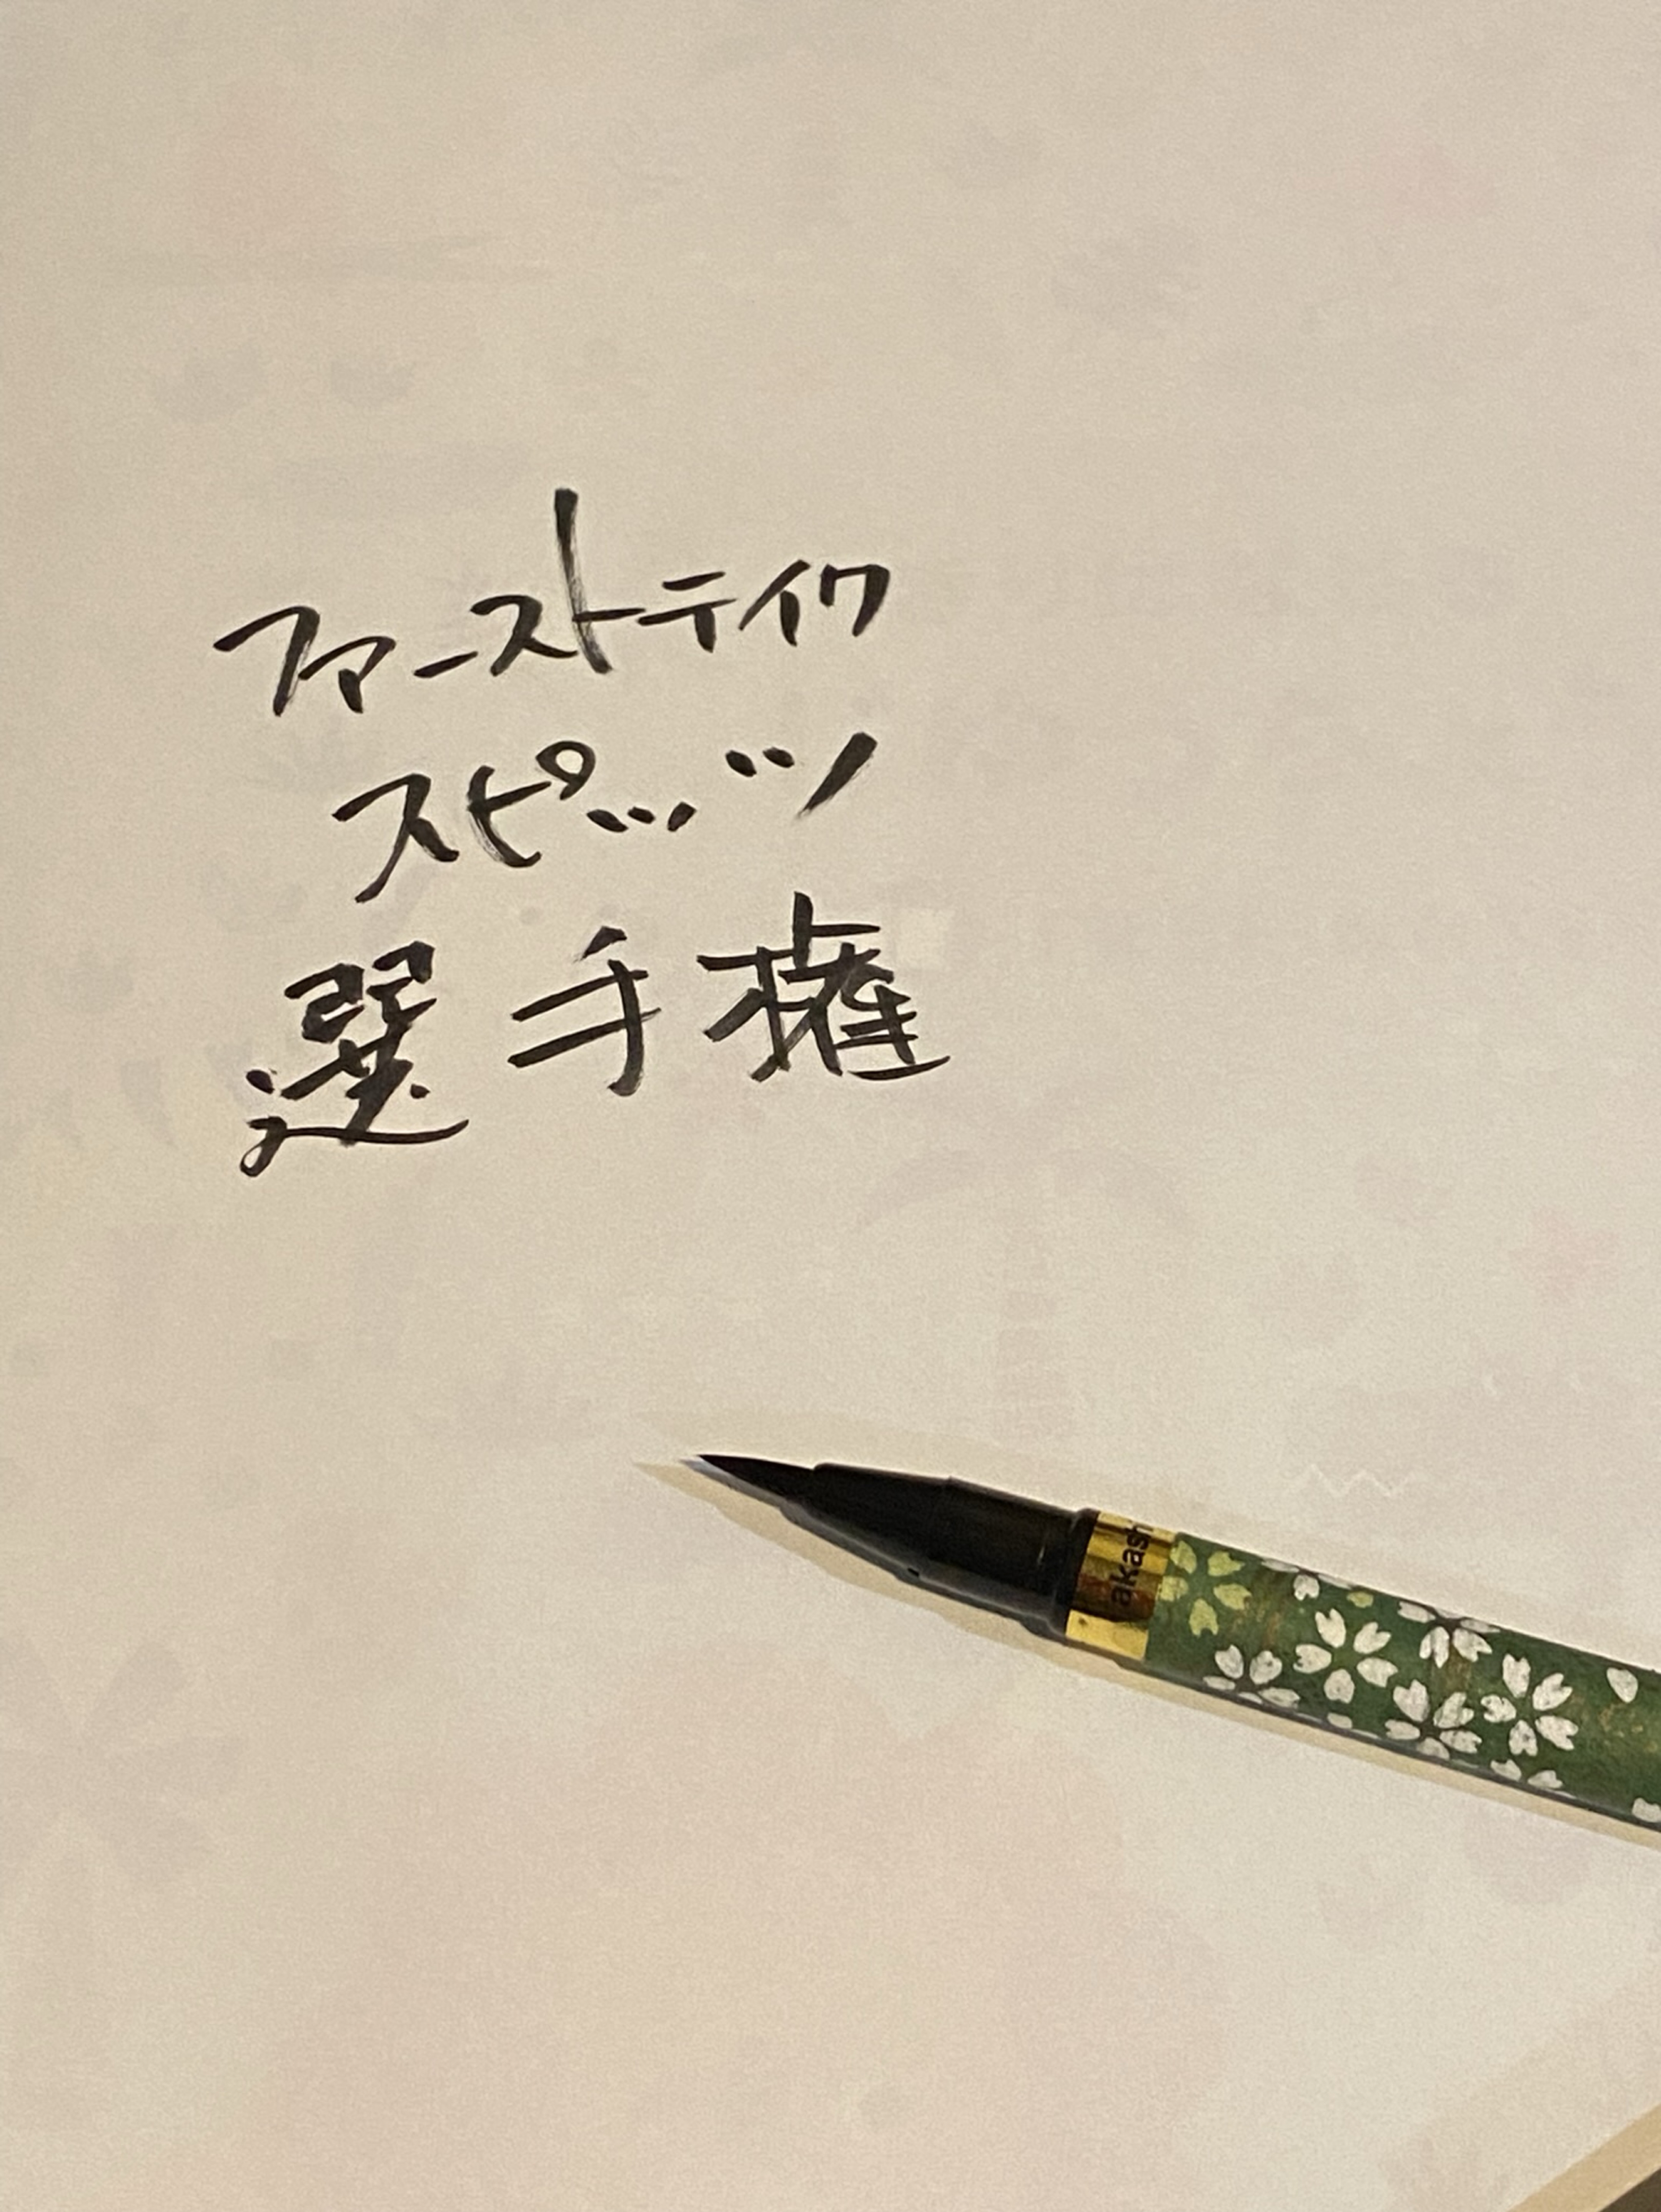 ファーストテイク
スピッツ
選手権
akashi